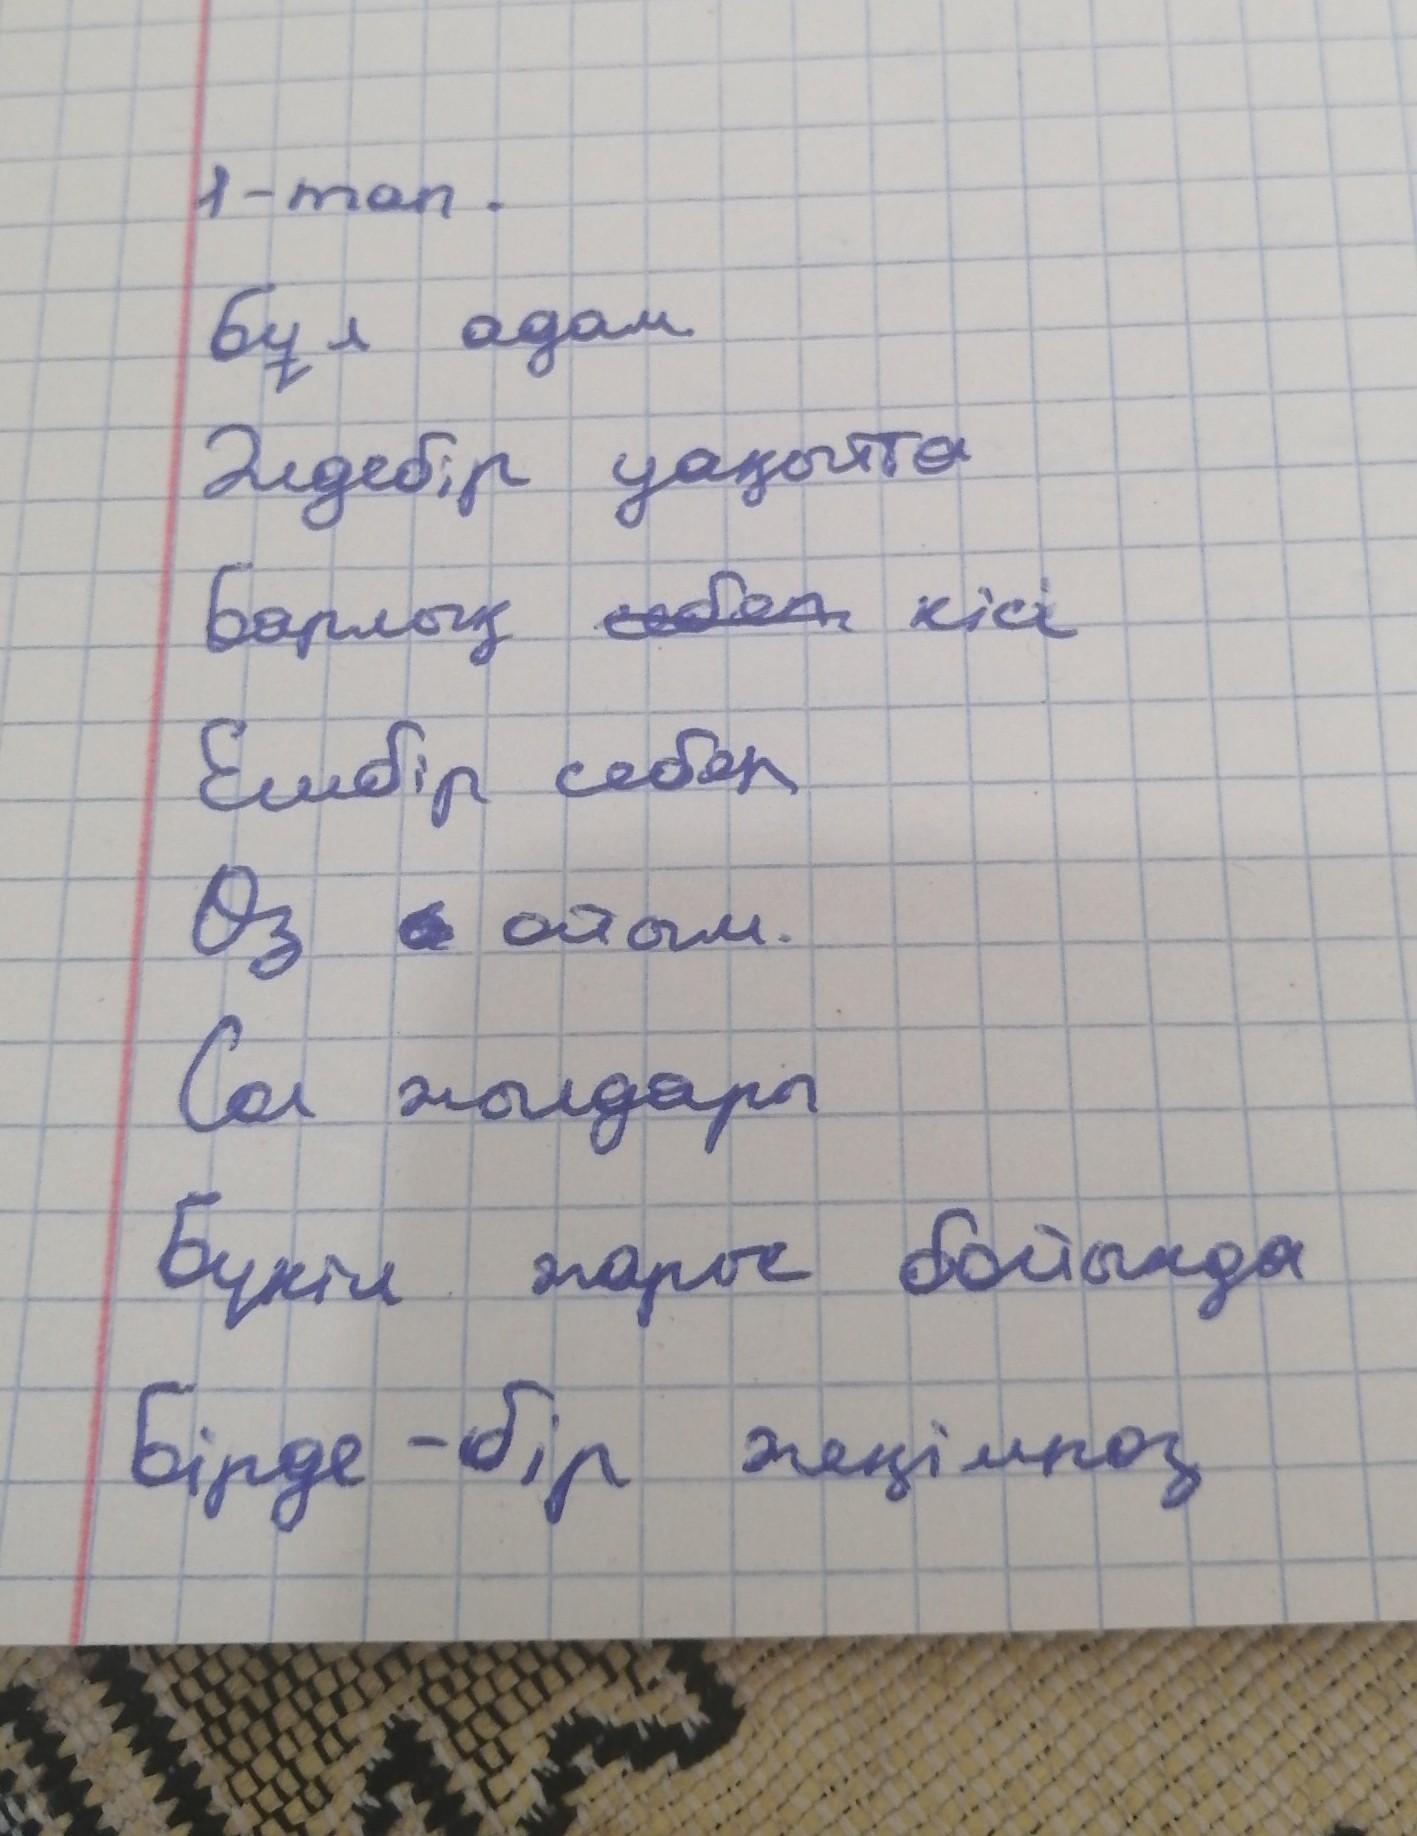 1-тап.
Бұл адам
Әлдебір уақытта
Барлық кісі
Ешбір себеп
Өз ойым.
Сол жылдары
Бүкіл жарыс бойында
Бірде-бір жеңімпаз